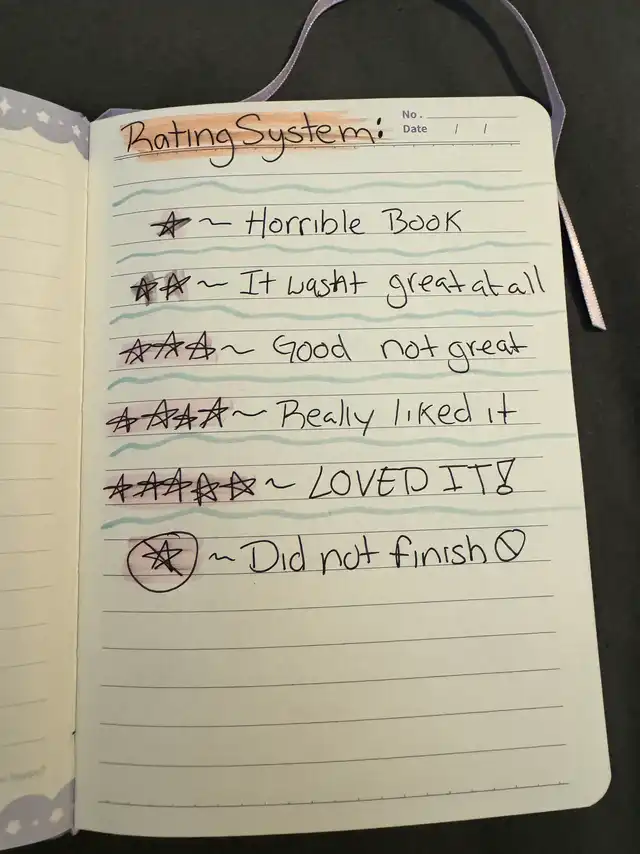 Rating System:
No.
Date / /
☆ ~ Horrible Book
☆☆ ~ It wasn't great at all
☆☆☆ ~ Good not great
☆☆☆☆ ~ Really liked it
☆☆☆☆☆ ~ LOVED IT!
☆ ~ Did not finish